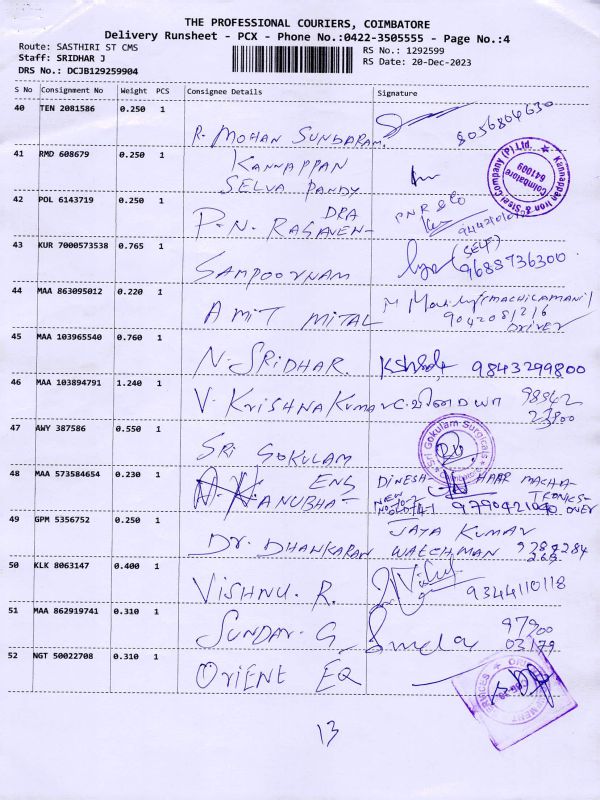 THE PROFESSIONAL COURIERS, COIMBATORE
Delivery Runsheet - PCX - Phone No.:0422-3505555 - Page No.:4
Route: SASTHIRI ST CMS
RS No.: 1292599
Staff: SRIDHAR J
RS Date: 20-Dec-2023
DRS No.: DCJB129259904
S No Consignment No Weight PCS Consignee Details Signature
40 TEN 2081586 0.250 1
R. MOHAN SUNDARAM. 8056804630
41 RMD 608679 0.250 1
KANNAPPAN
SELVA PANDY
Kannappan Iron & Steel Company (P) Ltd.
Coimbatore
641009
42 POL 6143719 0.250 1
DRA
P. N. RAGAVEN- PNR & Co
43 KUR 7000573538 0.765 1
SAMPOORNAM (SELF)
9688736300
44 MAA 863095012 0.220 1
AMIT MITAL (MACHILAMANI)
9042081216
DRIVER
45 MAA 103965540 0.760 1
N. SRIDHAR. 9843299800
46 MAA 103894791 1.240 1
V. KRISHNA KUMAR 98942
23900
47 AWY 387586 0.550 1
SRI GOKULAM
Sri Gokulam Surgicals
48 MAA 573584654 0.230 1
ENG
KANUBHA- DINESH- HAAR MACHA-
TRONICS-
NEW
9790421040 OVER
49 GPM 5356752 0.250 1
JAYA KUMAR
DR. DHANKARAN WATCHMAN 9284284
50 KLK 8063147 0.400 1
VISHNU. R. 9344110118
51 MAA 862919741 0.310 1
SUNDAR. G. 97900
03179
52 NGT 50022708 0.310 1
ORIENT EQ
13